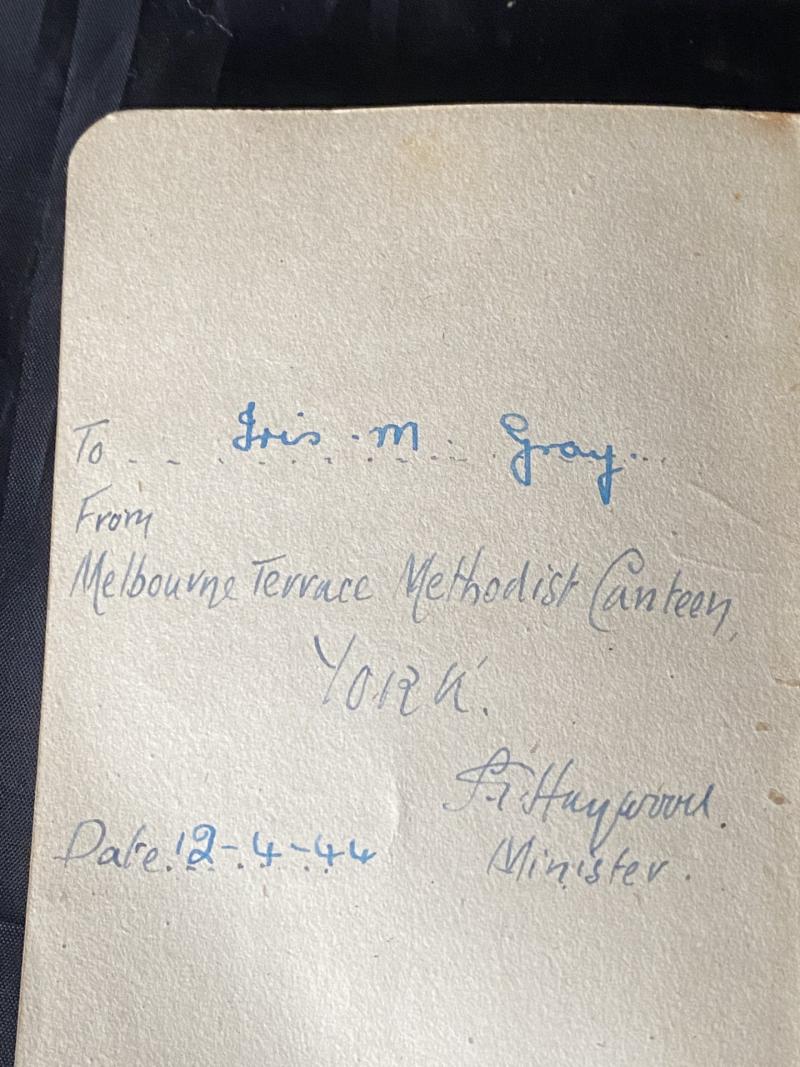 To . . Iris . M . Gray . . .
From
Melbourne Terrace Methodist Canteen,
YORK.
Haywood.
Date. 12-4-44 Minister.